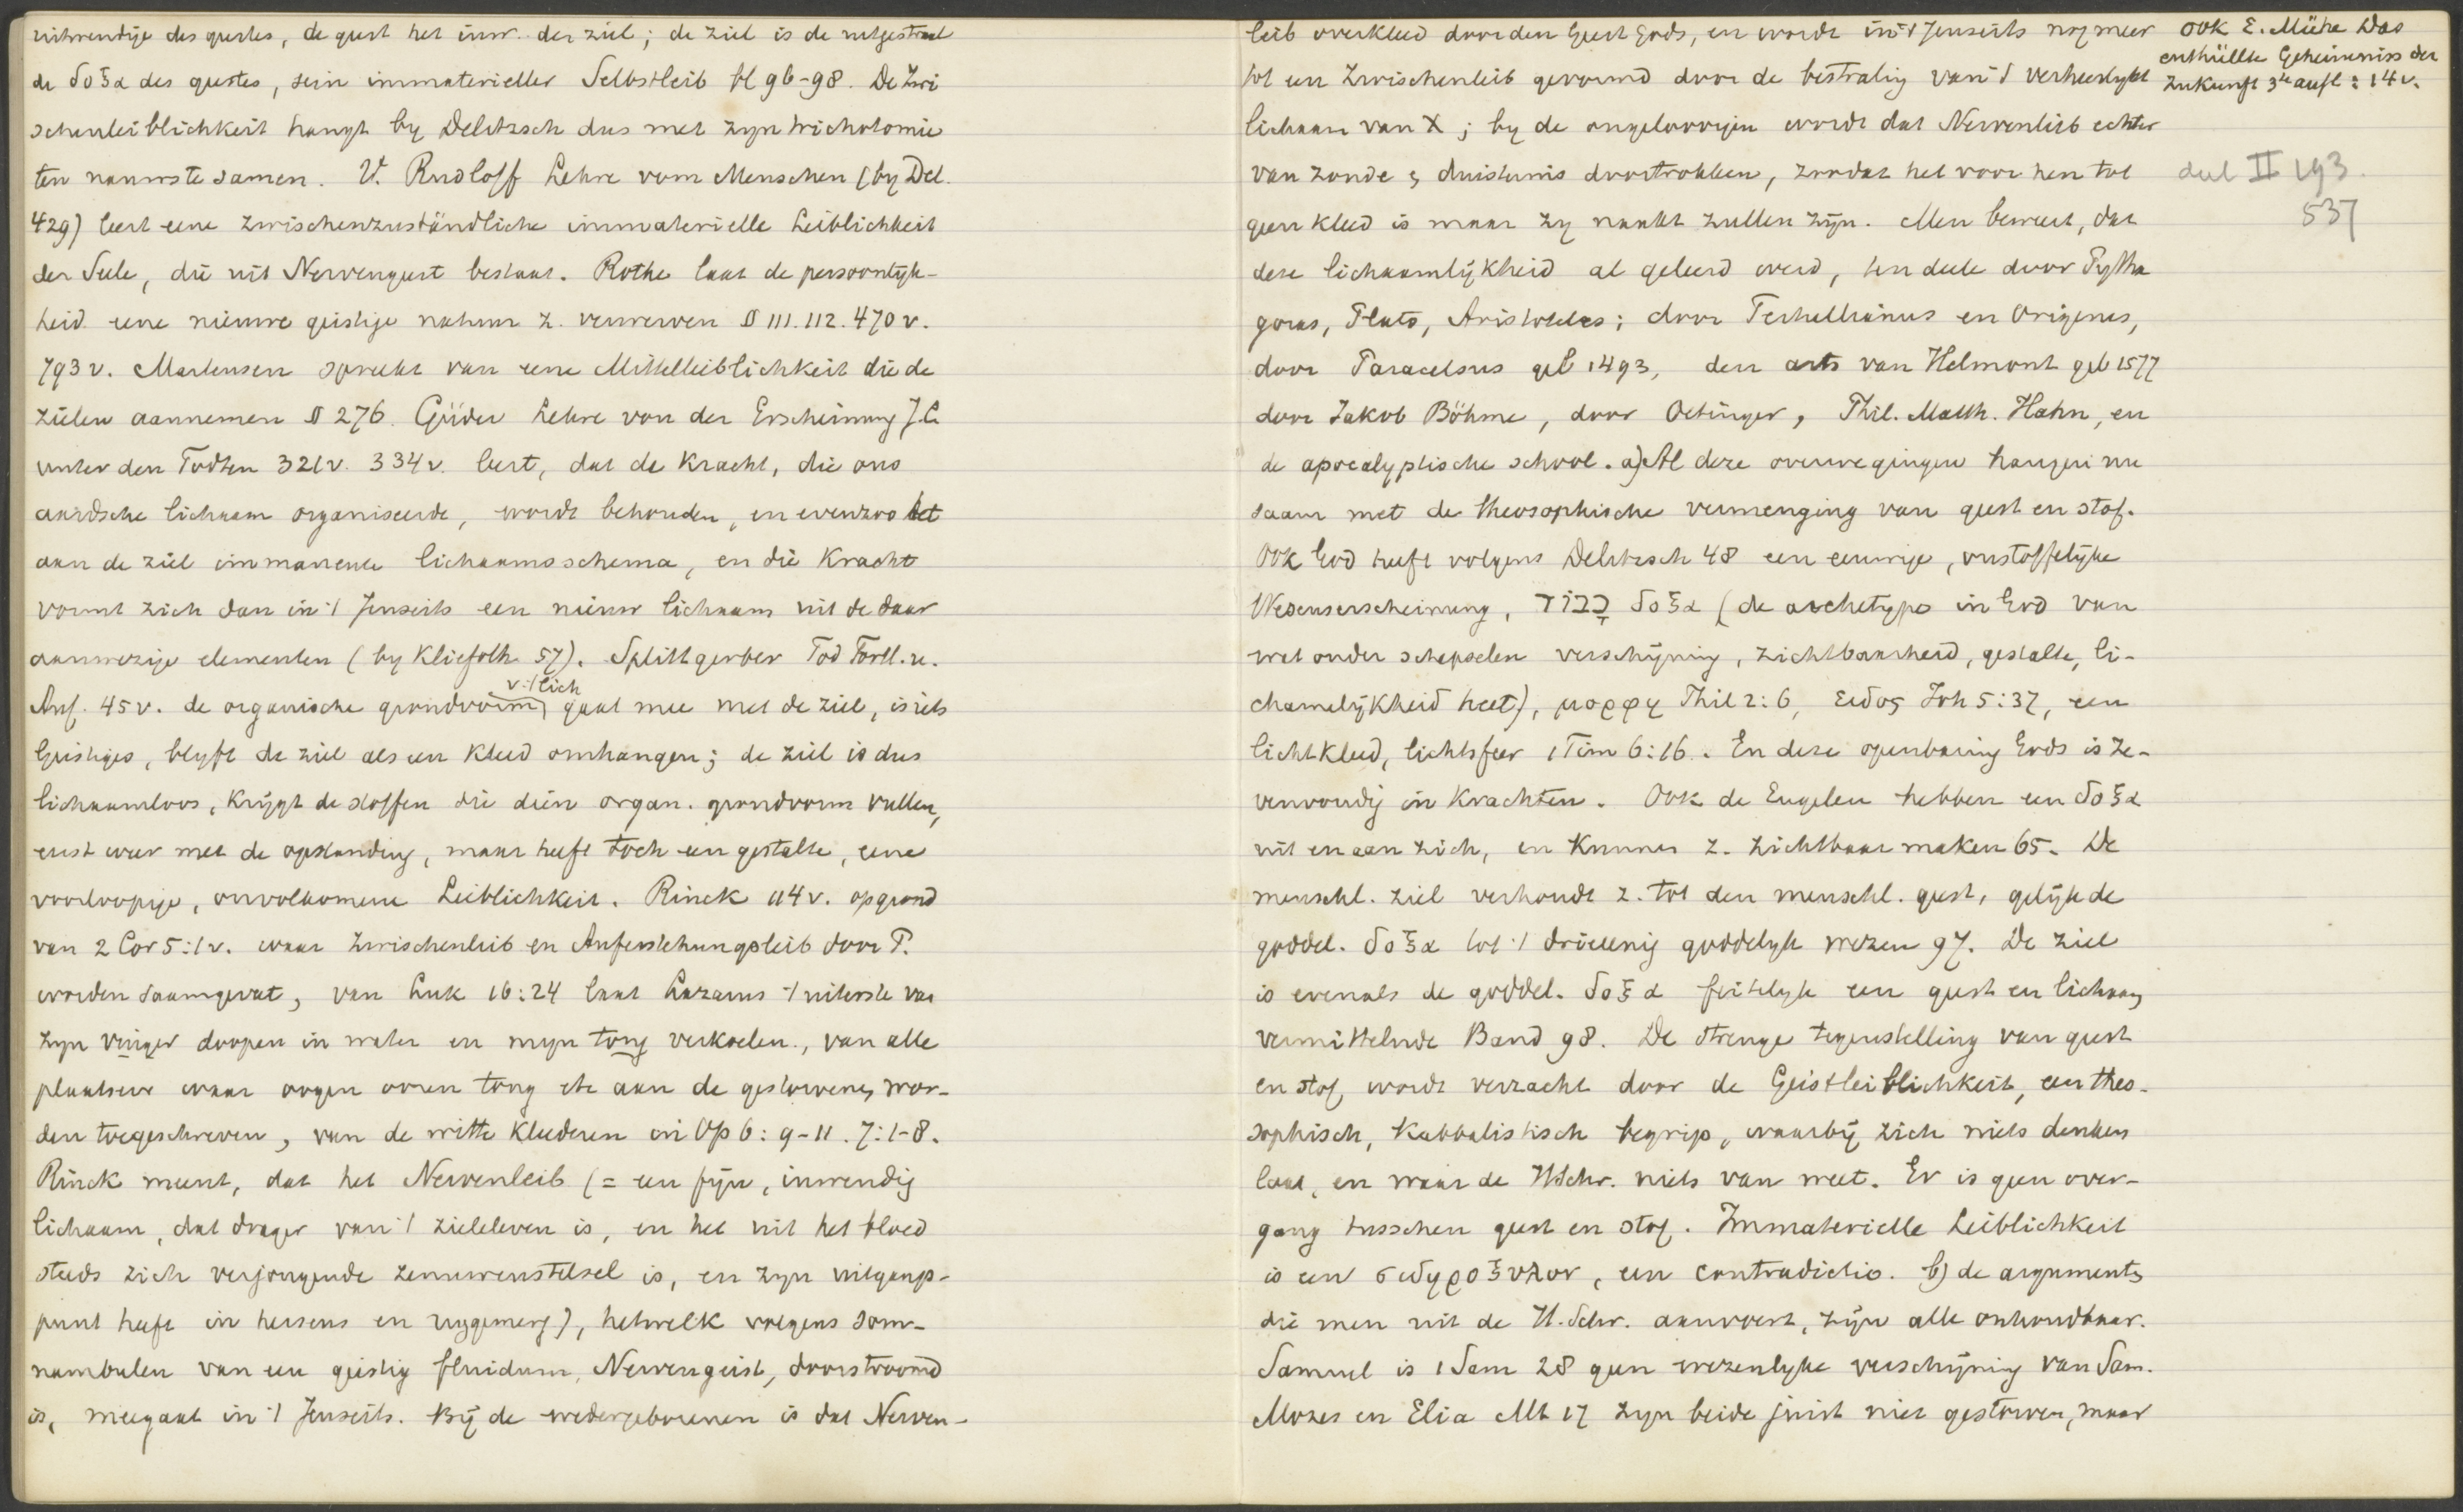 uitwendige des geestes, de geest het inw. der ziel; de ziel is de uitgestraal
de δοξα des geestes, sein immaterieller Selbstleib bl 96-98. De Zwi
schenleiblichkeit hangt by Delitzsch dus met zyn trichotomie
ten nauwste samen. V. Rudloff Lehre vom Menschen (by Del.
429) leert eene zwischenzuständliche immaterielle Leiblichkeit
der Seele, die uit Nervengeist bestaat. Rothe laat de persoonlyk-
heid eene nieuwe geistige natuur z. verwerven § 111. 112. 470 v.
793 v. Martensen spreekt van eene Mittelleiblichkeit die de
zielen aannemen § 276. Güder Lehre von der Erscheinung J.C.
unter den Todten 321v. 334v. leert, dat de kracht, die ons
aardsche lichaam organiseerde, wordt behouden, en evenzoo het
aan de ziel immanente lichaamsschema, en die kracht
vormt zich dan in 't Jenseits een nieuw lichaam uit de daar
aanwezige elementen (by Kliefoth 57). Splittgerber Tod Fortl. u.
Auf. 45 v. de organische grondvorm v. 't lich gaat mee met de ziel, is iets
Geistiges, blyft de ziel als een kleed omhangen; de ziel is dus
lichaamloos, krijgt de stoffen die dien organ. grondvorm vullen,
eerst weer met de opstanding, maar heeft toch een gestalte, eene
voorloopige, onvolkomene Leiblichkeit. Rinck 114 v. op grond
van 2 Cor 5:1 v. waar Zwischenleib en Auferstehungsleib door P.
worden saamgevat, van Luk 16:24 laat Lazarus 't uiterste van
zyn vinger doopen in water en myn tong verkoelen., van alle
plaatsen waar oogen ooren tong etc aan de gestorvenen wor-
den toegeschreven, van de witte kleederen in Op 6: 9-11. 7:1-8.
Rinck meent, dat het Nervenleib (= een fijn, inwendig
lichaam, dat drager van 't zieleleven is, en het uit het bloed
steeds zich verjongende zenuwenstelsel is, en zyn uitgangs-
punt heeft in hersens en ruggemerg), hetwelk volgens som-
nambulen van een geistig fluidum, Nervengeist, doorstroomd
is, meegaat in 't Jenseits. Bij de wedergeborenen is dat Nerven-
leib overkleed door den Geest Gods, en wordt in 't Jenseits nog meer
tot een Zwischenleib gevormd door de bestraling van 't verheerlykt
lichaam van X; by de ongeloovigen wordt dat Nervenleib echter
van zonde & duisternis doortrokken, zoodat het voor hen tot
geen kleed is maar zy naakt zullen zijn. Men beweert, dat
deze lichaamlijkheid al geleerd werd, ten deele door Pytha
goras, Plato, Aristoteles; door Tertullianus en Origenes,
door Paracelsus geb 1493, den arts van Helmont geb 1577
door Jakob Böhme, door Oetinger, Phil. Matth. Hahn, en
de apocalyptische school. a) Al deze overwegingen hangen nu
saam met de theosophische vermenging van geest en stof.
Ook God heeft volgens Delitzsch 48 een eeuwige, onstoffelijke
Wesenserscheinung, כבוד δοξα (de archetype in God van
wat onder schepselen verschijning, zichtbaarheid, gestalte, li-
chamelijkheid heet), μορφη Phil 2:6, ειδος Joh 5:37, een
lichtkleed, lichtsfeer 1 Tim 6:16. En deze openbaring Gods is ze-
venvoudig in krachten. Ook de Engelen hebben een δοξα
uit en aan zich, en kunnen z. zichtbaar maken 65. De
menschl. ziel verhoudt z. tot den menschl. geest, gelijk de
goddel. δοξα tot 't drieeenig goddelyk wezen 97. De ziel
is evenals de goddel. δοξα feitelyk een geest en lichaam
vermittelnde Band 98. De strenge tegenstelling van geest
en stof wordt verzacht door de Geistleiblichkeit, een theo-
sophisch, Kabbalistisch begrip, waarbij zich niets denken
laat, en waar de HSchr. niets van weet. Er is geen over-
gang tusschen geest en stof. Immaterielle Leiblichkeit
is een σιδηροξυλον, een contradictio. b) de argumenten
die men uit de H. Schr. aanvoert, zijn alle onhoudbaar.
Samuel is 1 Sam 28 geen wezenlyke verschijning van Sam.
Mozes en Elia Mt 17 zyn beide juist niet gestorven, maar
ook E. Mühe Das
enthüllte Geheimniss der
Zukunft 3te aufl: 14 v.
deel II 193.
537